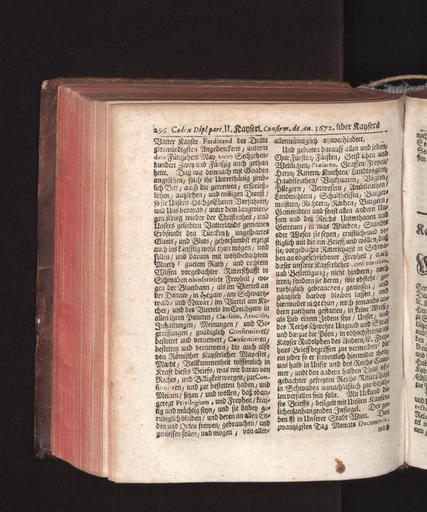 296 Codex Dipl. part. II. Kayserl. Confirm. de An. 1672. über Kaysers
Vatter Kayser Ferdinand der Dritte
glorwürdigsten Angedenckens, unterm
dato Fünffzehent May Anno Sechzehen-
hundert Zwey und Fünfftzig auch gethan
hette. Daß wir demnach mit Gnaden
angesehen, solch ihr Unterthänig ziemb-
lich Bitt, auch die getrewen, ersprieß-
lichen, nutzlichen und willigen Dienst,
so sie Unsern Hochgeehrten Vorfahren,
und Uns bevorab, unter dem langwieri-
gen Krieg wieder der Christenheit, und
Unsers geliebten Vatterlands gemeinen
Erbfeind den Türcken, ungesparter
Guets, und Bluts, gehorsambst erzeigt
auch ins künfftig wohl thun mögen, und
sollen; und darum mit wohlbedachtem
Mueth, guetem Rath, und rechtem
Wissen vorgedachter Ritterschafft in
Schwaben obinserirte Freyheit, we-
gen der Bluetbann, als im Viertel an
der Donaw, in Hegaw, im Schwartz-
wald, und Necar, im Viertel am Ko-
cher, und des Viertels im Creichgaw in
allen ihren Puncten, Clausuln, Articuln,
Inhaltungen, Meinungen, und Be-
greiffungen, gnädiglich Confirmiret,
bestettet und vernewert, Confirmiren,
bestetten und vernewern, die auch also
von Römischer Kayserlicher Mayestet,
Macht, Vollkommenheit wissentlich in
Krafft dieses Brieffs, was wir daran von
Rechts, und Billigkeit wegen, zu Con-
firmiren, und zue bestetten haben, und
Meinen, setzen, und wollen, daß oban-
geregt Privilegium, und Freyheit, kräf-
tig und mächtig seyn, und sie dabey ge-
ruhiglich bleiben, und deren an allen En-
den und Orten frewen, gebrauchen, und
geniessen sollen, und mögen, von aller-
allermänniglich ohnverhindert.
Und gebieten darauff allen und jeden,
Chur-Fürsten, Fürsten, Geist lichen und
Weltlichen, Prälaten, Graffen, Freyen,
Herrn, Rittern, Knechten, Landvögten,
Haubtleuthen, Vitzdomen, Vögten,
Pflegern, Verwesern, Ambtleuthen,
Landrichtern, Schultheissen, Burger-
meistern, Richtern, Räthen, Burgern,
Gemeinden und sonst allen andern Un-
sern und des Reichs Unterthanen und
Getreuen, in was Würden, Standts
oder Wesen sie seyen, ernstlich und ve-
stiglich mit diesem Brieff, und wollen, daß
sie, vorgedachte Ritterschafft in Schwa-
ben an obgeschriebener Freyheit, auch
dieser unserer Kayserlicher Confirmation
und Bestettigung, nicht hindern, noch
irren, sondern sie deren, wie obstehet, ge-
ruehiglich gebrauchen, geniessen, und
gäntzlich darbey bleiben lassen, und
hierwieder nicht thun, noch jemands an-
dern zue thuen gestatten, in keine Weis,
als Lieb einem Jeden seye, Unser, und
des Reichs schwehre Ungnad und Straf
und darzue die Pöen, in obhochgemelten
Kayser Rudolphen des Andern, etc. Frey-
heits Brieff begriffen zue vermeiden, die
ein jeder so er frevenlich hierwieder thete,
uns halb in Unser und des Reichs Cam-
mer, und den andern halben Theil, ob-
gedachter gefreyten Reichs-Ritterschafft
in Schwaben unnachläßlich zue bezah-
len verfallen sein solle. Mit Urkund die-
ses Brieffs, besigelt mit Unserm Kayser-
lichen anhangenden Insiegel. Der ge-
ben ist in Unserer Stadt Wien. Den
zwanzigsten Tag Monats Decembris,
nach